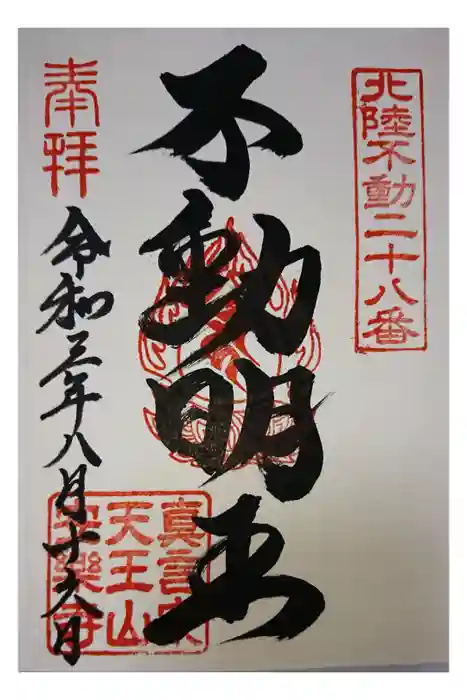 北陸不動二十八番
不動明王
奉拝
令和三年八月十六日
真言宗
天王山
安樂寺